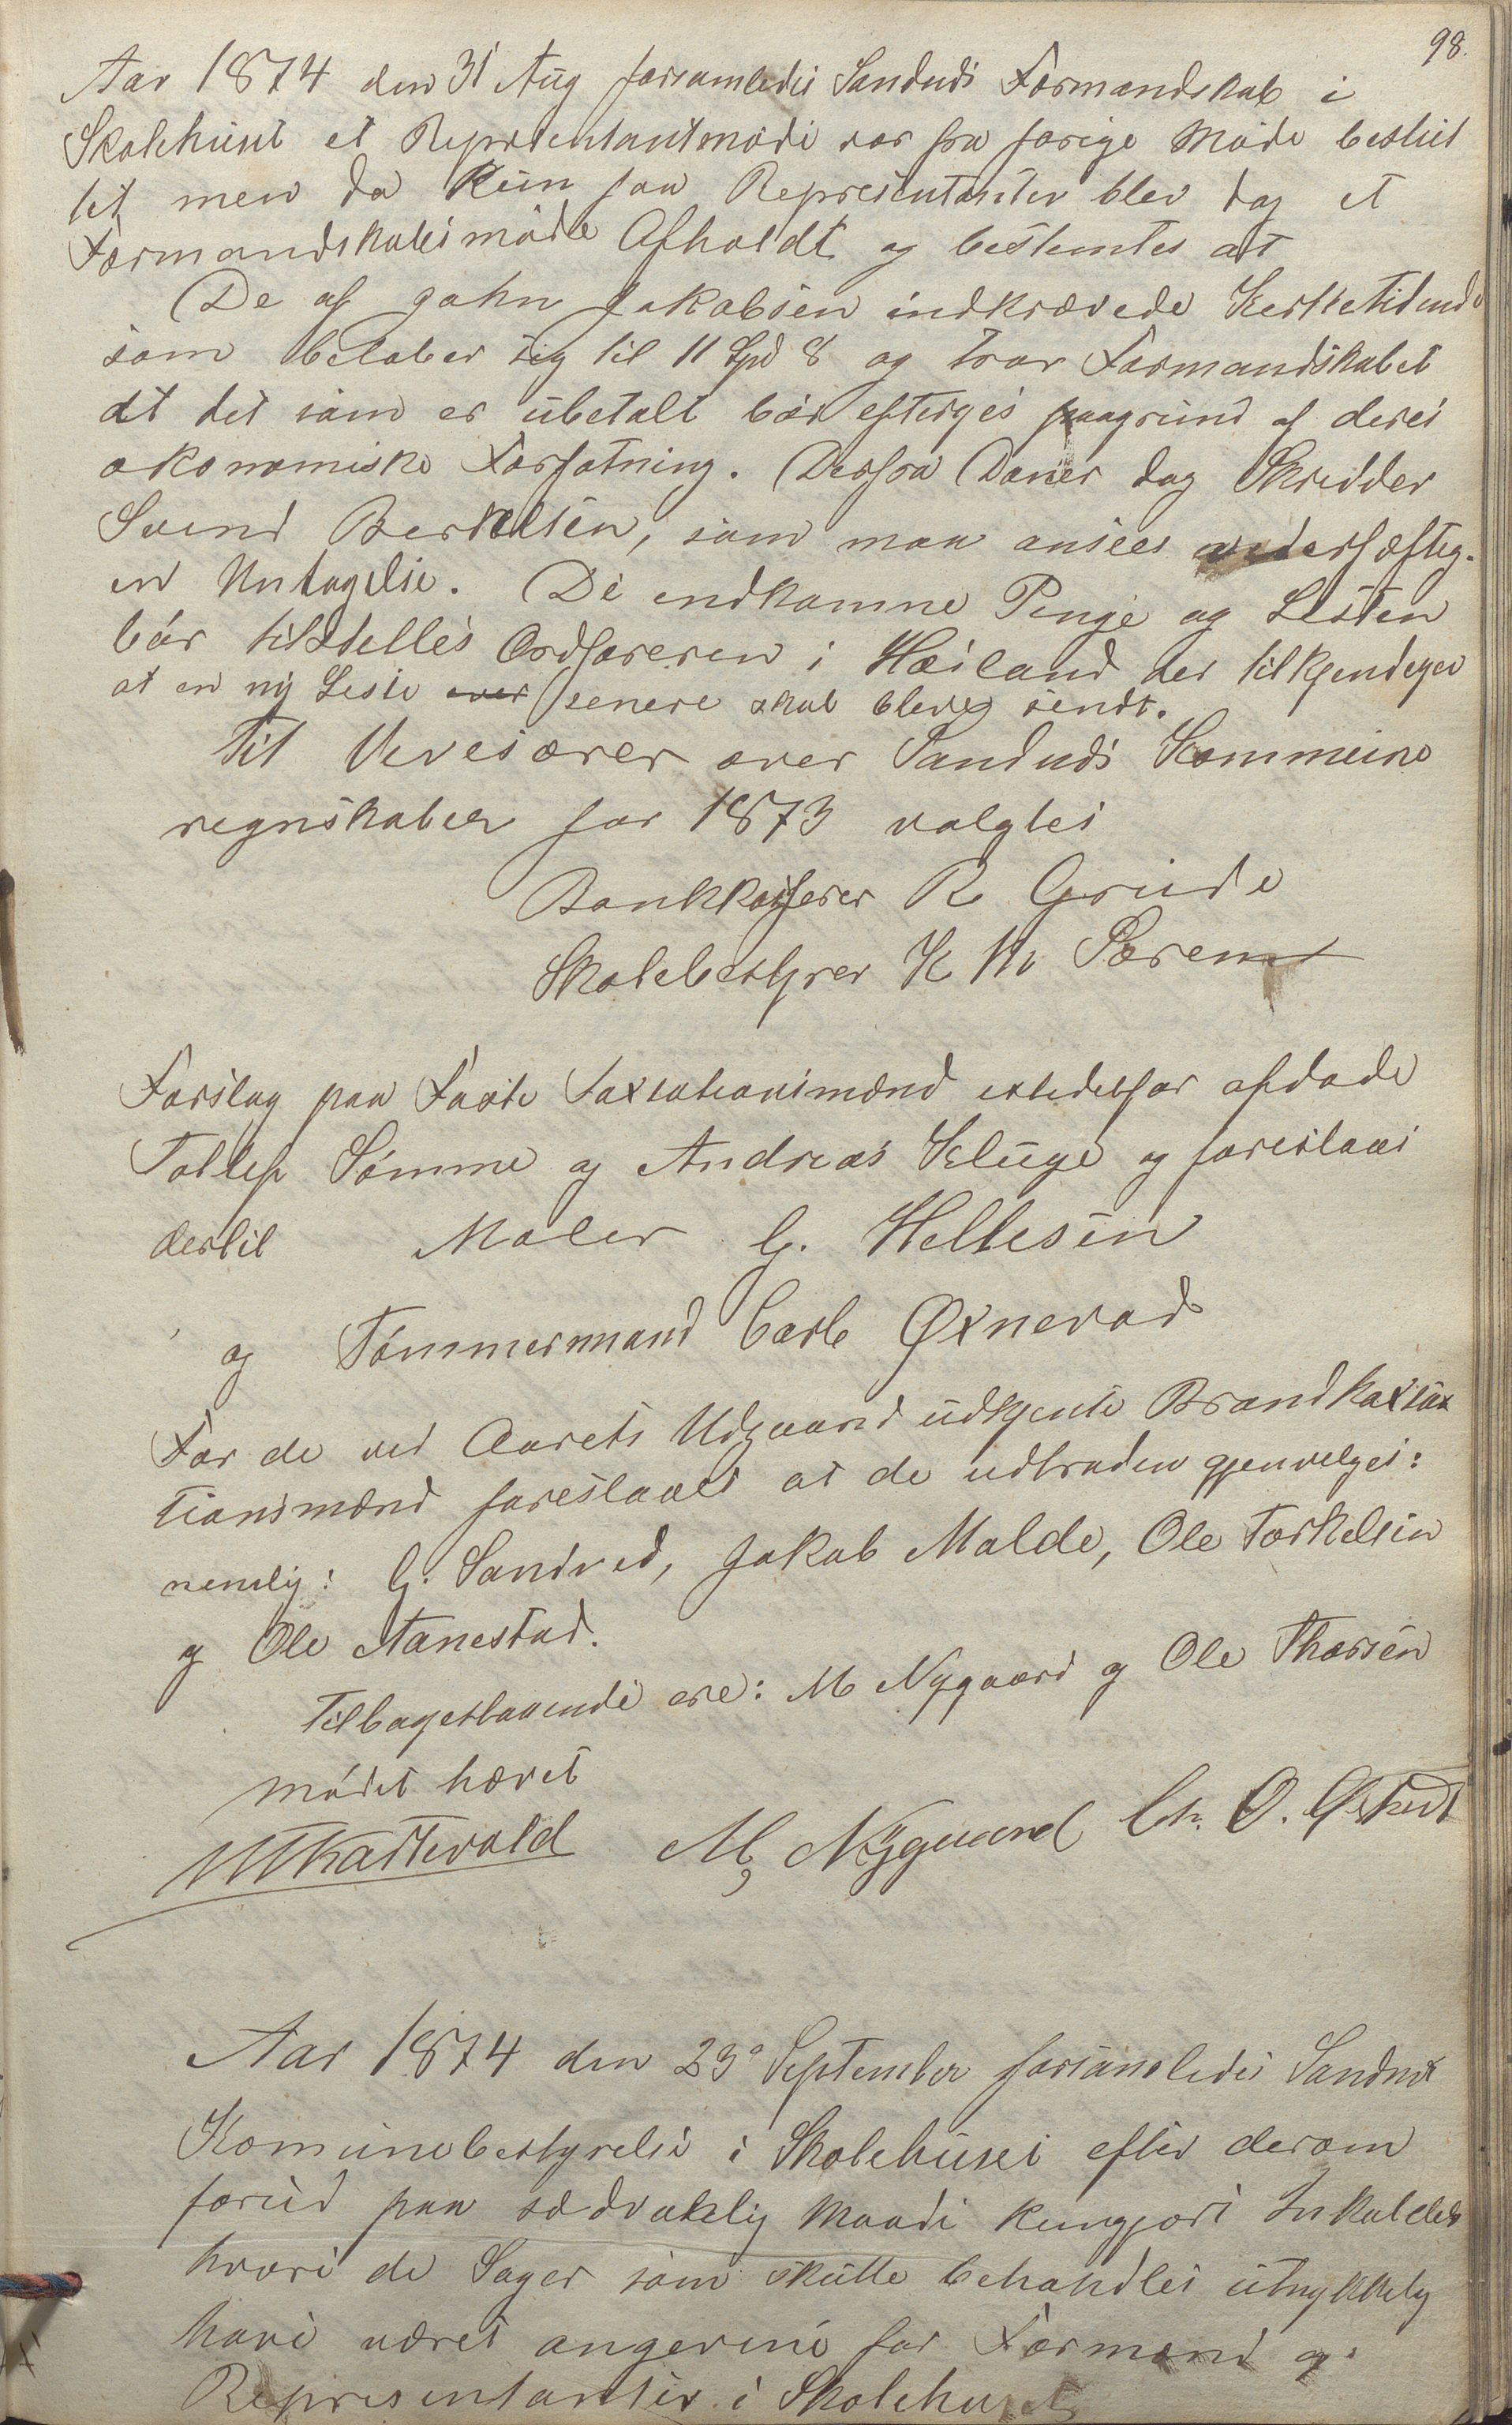 98.
Aar 1874 den 31 Aug forsamledes Sandnds Formandskab i
Skolehuset et Representantmøde var fra forige Møde beslut
tet, men da Kun faa Representanter blev dog et
Formandskabsmøde Afholdt og bestemtes at
De af John Jakobsen indkrævede Kerketiende
som beløber sig til 11 Spd 8 og tror Formandskabet
at det som er ubetalt bør eftergis paagrund af deres
økonomiske Forfatning. Derfra Daner dog Skredder
Svend Berkelsen, som man ansees vederhæftig.
en Untagelse. De indkomne Penge og Listen
bør tilstelles Ordføreren i Høiland der tilkjendegev
at en ny Liste senere skal bleve sendt.
Til Revesorer over Sandnds Kommune
regnskaber for 1873 valgtes
Bankkasserer R Grude
Skolebestyrer K M Søren
Forslag paa Faste Taxtationsmænd istedetfor afdøde
Tollef Sømme og Andreas Kluge og foreslaaes
dertil Maler G. Hellesen
og Tømmermand Carl Øxnevad
For de ved Aarets Udgaand udgjente Brandkaxtax
tionsmænd foreslaaes at de udtraden gjenvelges:
nemlig: G. Sandved, Jakob Malde, Ole Torkelsen
og Ole Aanestad.
Tilbagestaaende ere: M Nygaard og Ole Thorsen
mødet hævet
M Skattevold M. Nygaard Chr. O. Østvedt
Aar 1874 den 23de September forsamledes Sandnds
Komunebestyrelse i Skolehuset efter derom
forud paa sædvalelig Maade kungjort Inkaldels
hvori de Sager som skulle behandles utrykkelig
have været angevene for Formænd og
Representanter i Skolehuset